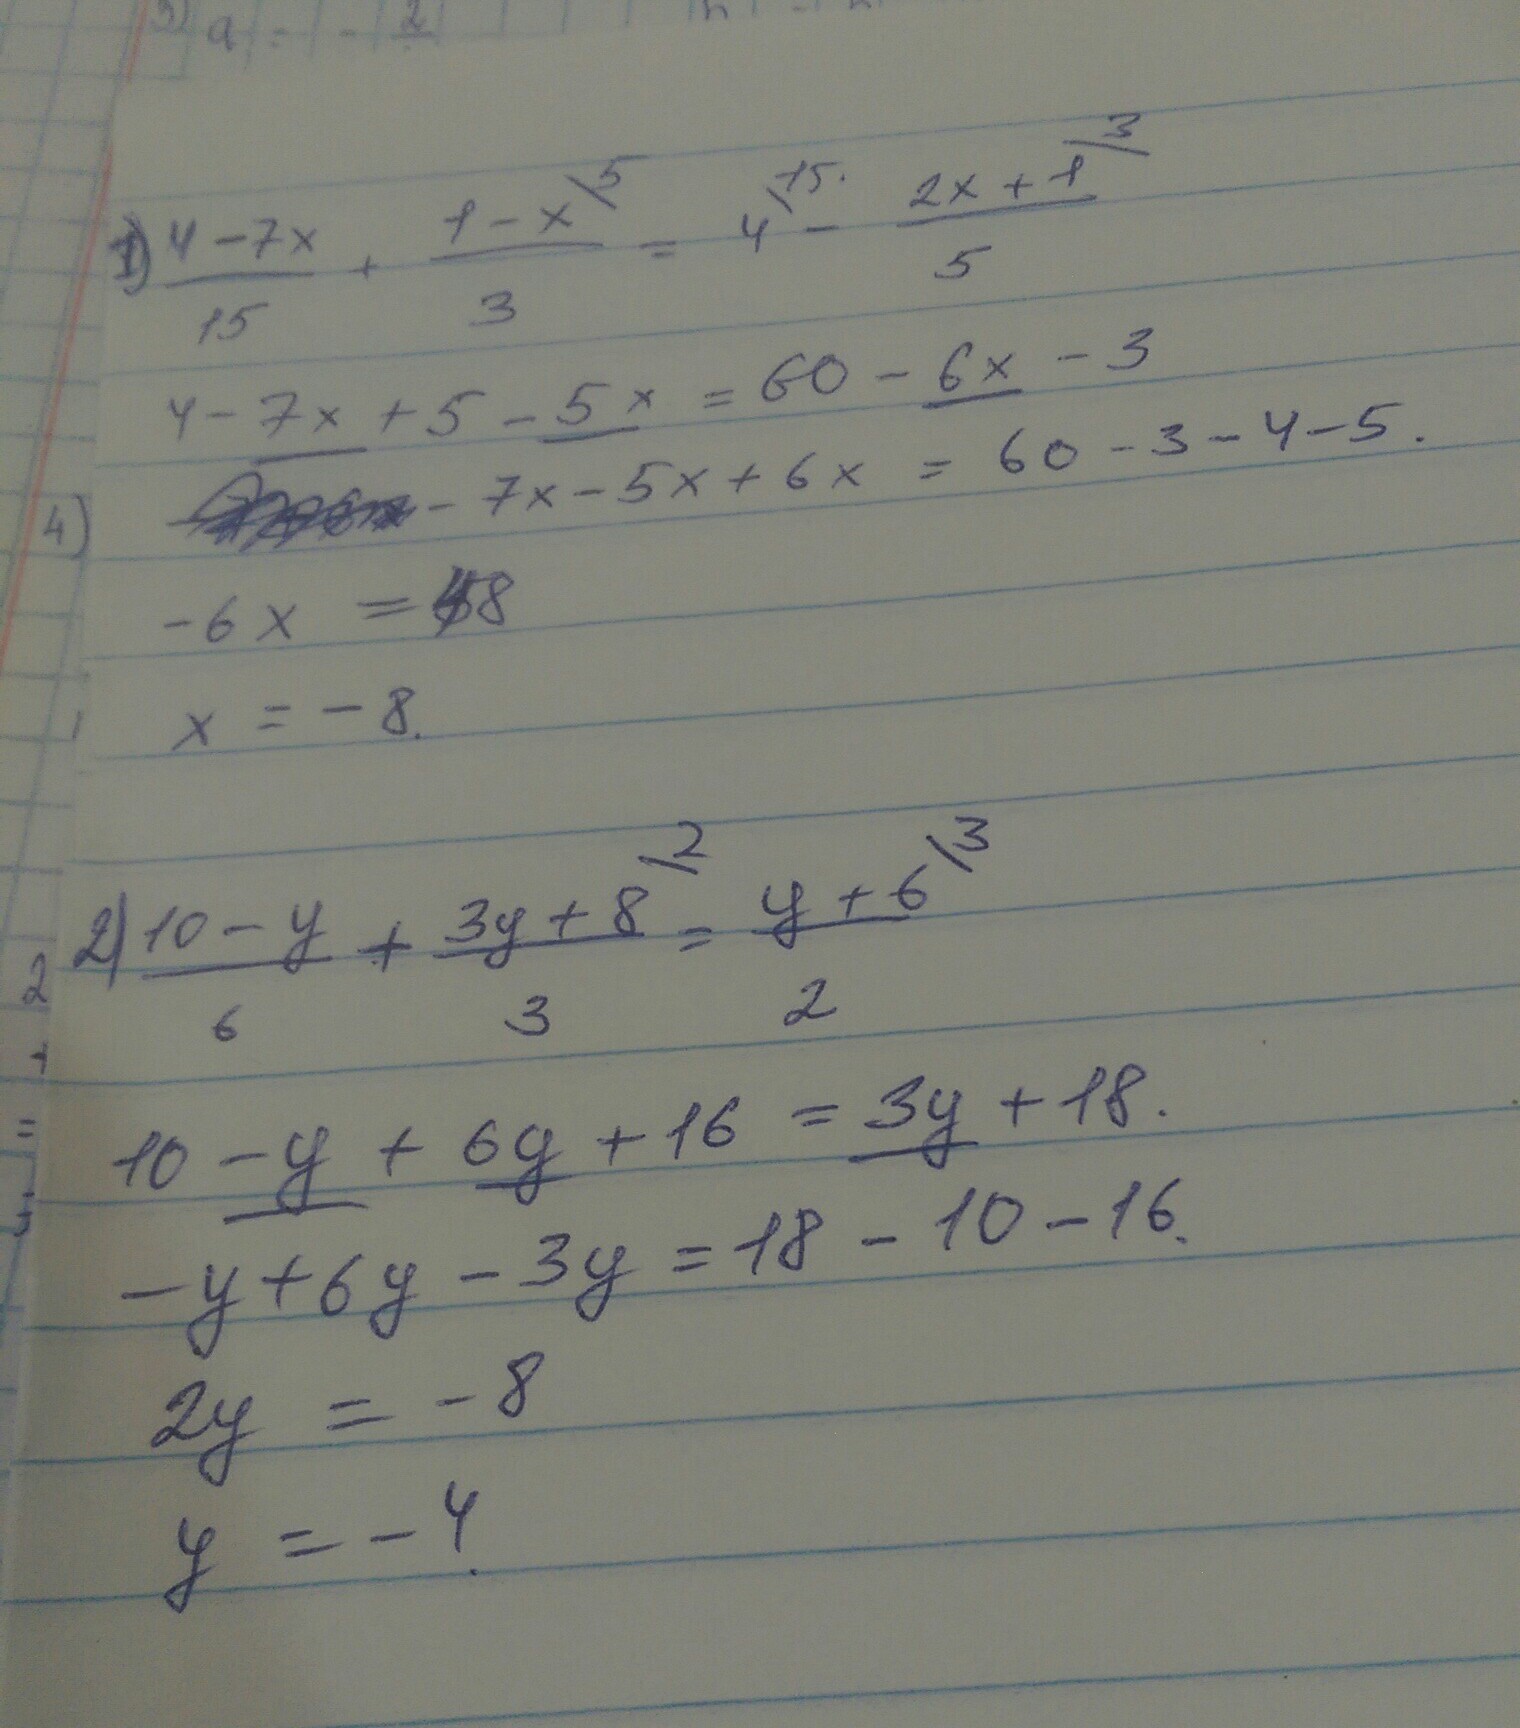 3) a = - 2
1) 4-7x/15 + 1-x\5/3 = 4\15 - 2x+1\3/5
4-7x+5-5x=60-6x-3
-7x-5x+6x=60-3-4-5.
4)
-6x=48
x=-8.
2) 10-y/6 + 3y+8\2/3 = y+6\3/2
10-y+6y+16=3y+18.
-y+6y-3y=18-10-16.
2y=-8
y=-4.